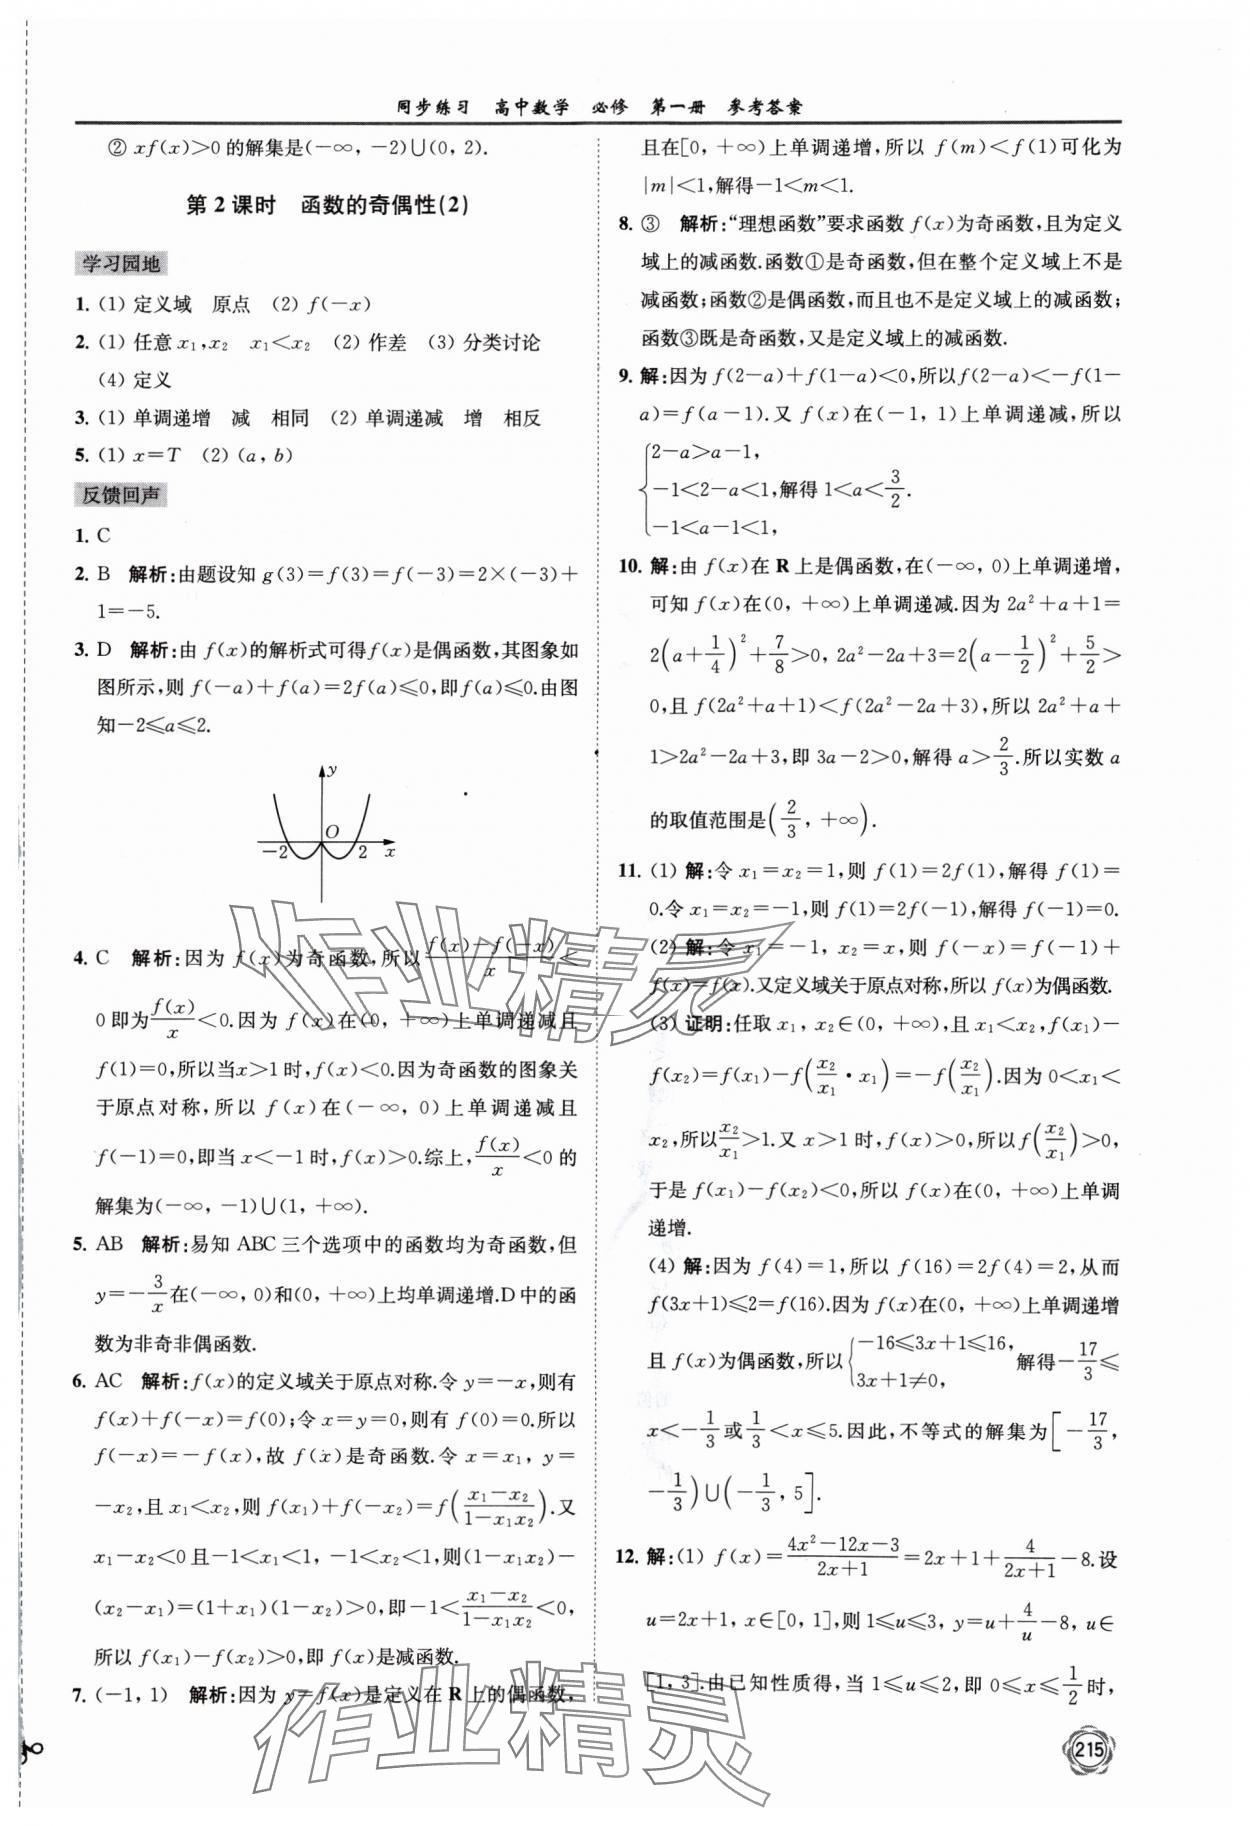 同步练习　高中数学　必修　第一册　参考答案
② xf(x)>0的解集是(-∞, -2)∪(0, 2).
第2课时　函数的奇偶性(2)
学习园地
1. (1) 定义域　原点　(2) f(-x)
2. (1) 任意 x₁,x₂　x₁<x₂　(2) 作差　(3) 分类讨论
(4) 定义
3. (1) 单调递增　减　相同　(2) 单调递减　增　相反
5. (1) x=T　(2) (a, b)
反馈回声
1. C
2. B　解析:由题设知 g(3)=f(3)=f(-3)=2×(-3)+
1=-5.
3. D　解析:由 f(x)的解析式可得f(x)是偶函数,其图象如
图所示,则 f(-a)+f(a)=2f(a)≤0,即f(a)≤0.由图
知-2≤a≤2.
y
O
-2　2　x
4. C　解析:因为 f(x)为奇函数,所以 (f(x)-f(-x))/x <
0即为 f(x)/x <0.因为 f(x)在(0, +∞)上单调递减且
f(1)=0,所以当x>1时,f(x)<0.因为奇函数的图象关
于原点对称,所以 f(x)在(-∞, 0)上单调递减且
f(-1)=0,即当 x<-1时,f(x)>0.综上, f(x)/x <0的
解集为(-∞, -1)∪(1, +∞).
5. AB　解析:易知 ABC三个选项中的函数均为奇函数,但
y=-3/x 在(-∞, 0)和(0, +∞)上均单调递增.D中的函
数为非奇非偶函数.
6. AC　解析:f(x)的定义域关于原点对称.令 y=-x,则有
f(x)+f(-x)=f(0);令 x=y=0,则有 f(0)=0.所以
f(-x)=-f(x),故 f(x)是奇函数.令 x=x₁, y=
-x₂,且 x₁<x₂,则 f(x₁)+f(-x₂)=f((x₁-x₂)/(1-x₁x₂)).又
x₁-x₂<0且-1<x₁<1, -1<x₂<1,则(1-x₁x₂)-
(x₂-x₁)=(1+x₁)(1-x₂)>0,即-1<(x₁-x₂)/(1-x₁x₂)<0,
所以 f(x₁)-f(x₂)>0,即 f(x)是减函数.
7. (-1, 1)　解析:因为 y=f(x)是定义在 R上的偶函数,
且在[0, +∞)上单调递增,所以 f(m)<f(1)可化为
|m|<1,解得-1<m<1.
8. ③　解析:“理想函数”要求函数 f(x)为奇函数,且为定义
域上的减函数.函数①是奇函数,但在整个定义域上不是
减函数;函数②是偶函数,而且也不是定义域上的减函数;
函数③既是奇函数,又是定义域上的减函数.
9. 解:因为 f(2-a)+f(1-a)<0,所以f(2-a)<-f(1-
a)=f(a-1).又 f(x)在(-1, 1)上单调递减,所以
2-a>a-1,
-1<2-a<1,解得 1<a<3/2.
-1<a-1<1,
10. 解:由 f(x)在 R上是偶函数,在(-∞, 0)上单调递增,
可知 f(x)在(0, +∞)上单调递减.因为 2a²+a+1=
2(a+1/4)²+7/8>0, 2a²-2a+3=2(a-1/2)²+5/2>
0,且 f(2a²+a+1)<f(2a²-2a+3),所以 2a²+a+
1>2a²-2a+3,即 3a-2>0,解得 a>2/3.所以实数 a
的取值范围是(2/3, +∞).
11. (1) 解:令 x₁=x₂=1,则 f(1)=2f(1),解得 f(1)=
0.令 x₁=x₂=-1,则 f(1)=2f(-1),解得 f(-1)=0.
(2) 解:令 x₁=-1, x₂=x,则 f(-x)=f(-1)+
f(x)=f(x).又定义域关于原点对称,所以 f(x)为偶函数.
(3) 证明:任取 x₁, x₂∈(0, +∞),且 x₁<x₂,f(x₁)-
f(x₂)=f(x₁)-f(x₂/x₁·x₁)=-f(x₂/x₁).因为 0<x₁<
x₂,所以x₂/x₁>1.又 x>1时,f(x)>0,所以f(x₂/x₁)>0,
于是 f(x₁)-f(x₂)<0,所以 f(x)在(0, +∞)上单调
递增.
(4) 解:因为 f(4)=1,所以 f(16)=2f(4)=2,从而
f(3x+1)≤2=f(16).因为 f(x)在(0, +∞)上单调递增
且 f(x)为偶函数,所以{-16≤3x+1≤16, 3x+1≠0, 解得-17/3≤
x<-1/3或1/3<x≤5.因此,不等式的解集为[-17/3,
-1/3)∪(-1/3, 5].
12. 解:(1) f(x)=(4x²-12x-3)/(2x+1)=2x+1+4/(2x+1)-8.设
u=2x+1, x∈[0, 1],则 1≤u≤3, y=u+4/u-8, u∈
[1, 3].由已知性质得,当 1≤u≤2,即 0≤x≤1/2时,
215
作业精灵
作业精灵